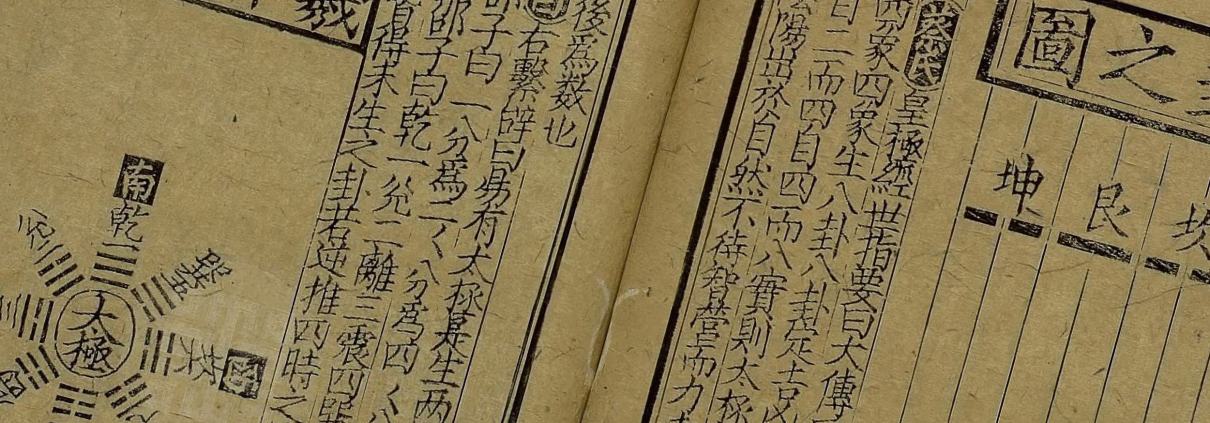 之圖
坎
艮
坤
皇極經世指要曰大傳
象四象生八卦八卦定吉凶
曰二而四自四而八實則太極
陰陽出於自然不待智營而力
後爲數也
右繫辭曰易有太極是生两
邵子曰一分爲二〻分爲四〻八
邵子曰乾一兊二離三震四巽
得未生之卦若逆推四時之
羲
南
乾
巽
坎
西
太極